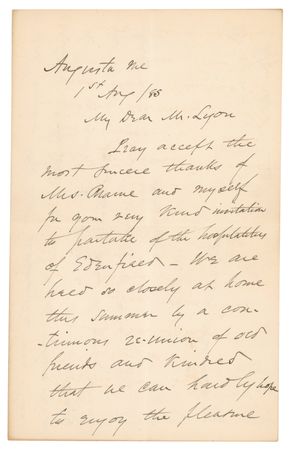 Augusta Me
1st Aug /85
My Dear Mr. Lyon
Pray accept the
most sincere thanks of
Mrs. Blaine and myself
for your very kind invitation
to partake of the hospitalities
of Edenfield — We are
held so closely at home
this summer by a con-
-tinuous re-union of old
friends and kindred
that we can hardly hope
to enjoy the pleasure